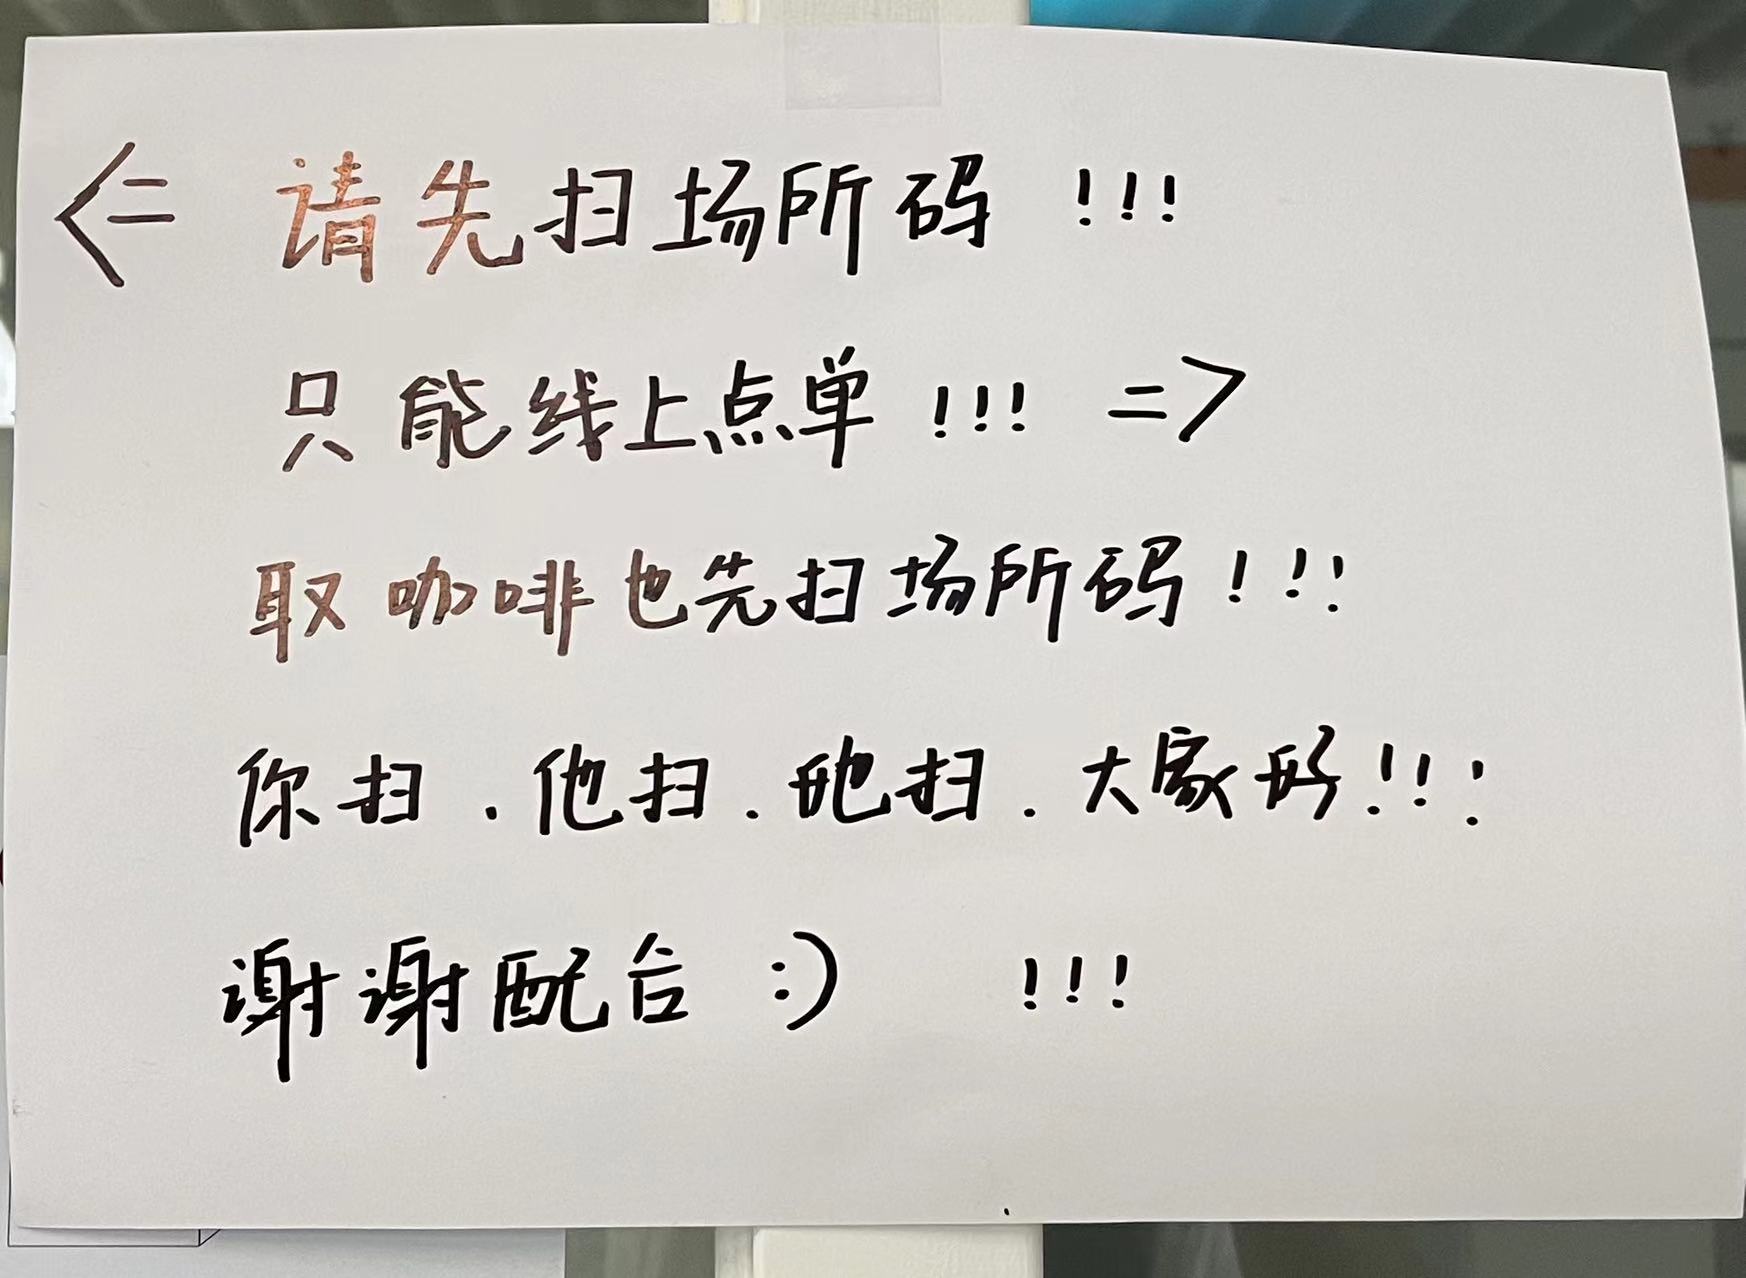 <= 请先扫场所码!!!
只能线上点单!!! =>
取咖啡也先扫场所码!!!
你扫.他扫.她扫.大家好!!!
谢谢配合 :) !!!